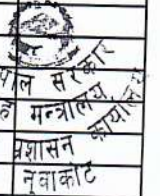 पाल सरकार
ह मन्त्रालय
प्रशासन कार्यालय
नुवाकोट